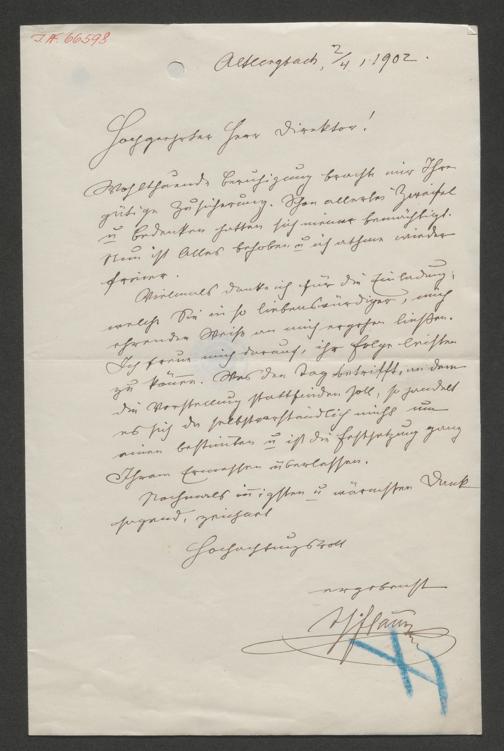 I.N. 66593
2/4, 1902.
Hochgeehrter Herr Direktor!
Wohlthuende Beruhigung brachte mir Ihre
gütige Zusicherung. Schon allerlei Zweifel
u Bedenken hatten sich meiner bemächtigt.
Nun ist Alles behoben u ich athme wieder
freier.
Vielmals danke ich für die Einladung,
welche Sie in so liebenswürdiger, mich
ehrender Weise an mich ergehen ließen.
Ich freue mich darauf, ihr Folge leisten
zu können. Was den Tag betrifft, an dem
die Vorstellung stattfinden soll, so handelt
es sich da selbstverständlich nicht um
einen bestimten u ist die Festsetzung ganz
Ihrem Ermessen überlassen.
Nochmals innigsten u wärmsten Dank
sagend, zeichnet
Hochachtungsvoll
ergebenst